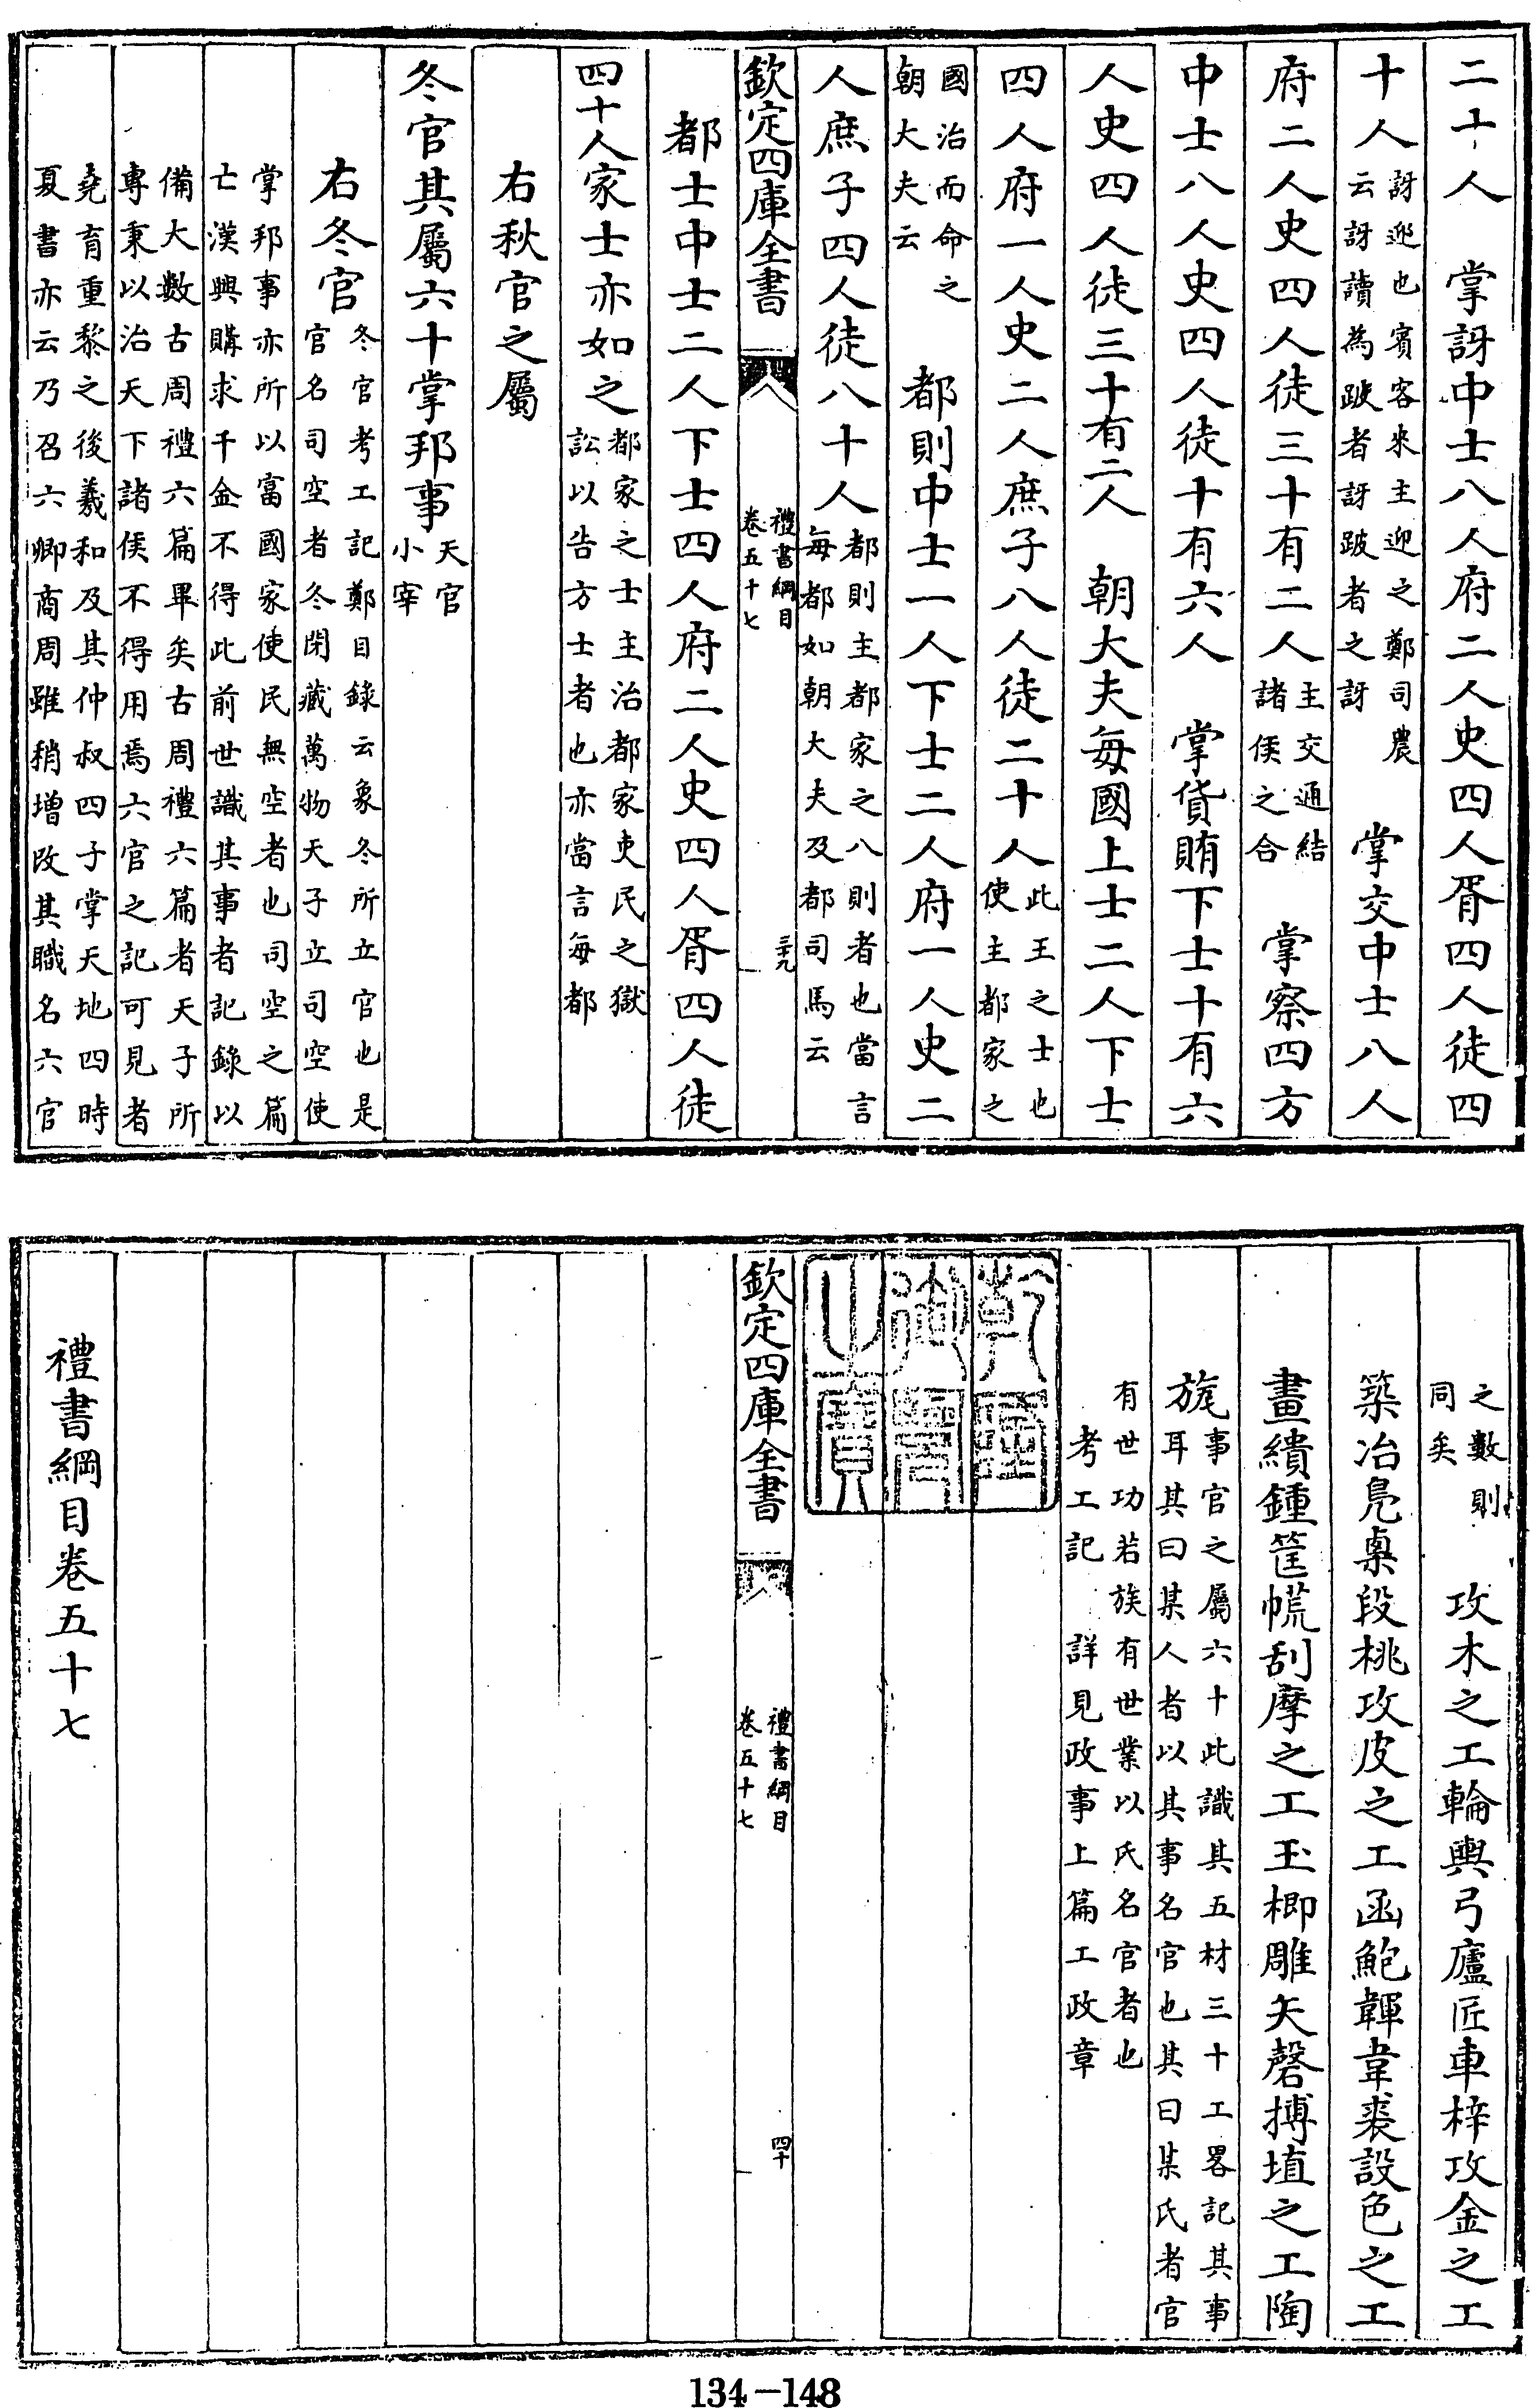 二十人　掌訝中士八人府二人史四人胥四人徒四
十人訝迎也賓客來主迎之鄭司農云訝讀為跛者訝跛者之訝　掌交中士八人
府二人史四人徒三十有二人主交通結諸侯之合　掌察四方
中士八人史四人徒十有六人　掌貨賄下士十有六
人史四人徒三十有二人　朝大夫每國上士二人下士
四人府一人史二人庶子八人徒二十人此王之士也使主都家之
國治而命之朝大夫云　都則中士一人下士二人府一人史二
人庶子四人徒八十人都則主都家之八則者也當言每都如朝大夫及都司馬云
欽定四庫全書　禮書綱目卷五十七　三十九
都士中士二人下士四人府二人史四人胥四人徒
四十人家士亦如之都家之士主治都家吏民之獄訟以告方士者也亦當言每都
右秋官之屬
冬官其屬六十掌邦事天官小宰
右冬官冬官考工記鄭目錄云象冬所立官也是官名司空者冬閉藏萬物天子立司空使
掌邦事亦所以富國家使民無空者也司空之篇亡漢興購求千金不得此前世識其事者記錄以
備大數古周禮六篇畢矣古周禮六篇者天子所專秉以治天下諸侯不得用焉六官之記可見者
堯育重黎之後羲和及其仲叔四子掌天地四時夏書亦云乃召六卿商周雖稍增改其職名六官
之數則同矣　攻木之工輪輿弓廬匠車梓攻金之工
築冶鳧㮚段桃攻皮之工函鮑韗韋裘設色之工
畫繢鍾筐㡛刮摩之工玉楖雕矢磬搏埴之工陶
旊事官之屬六十此識其五材三十工畧記其事耳其曰某人者以其事名官也其曰某氏者官
有世功若族有世業以氏名官者也考工記　詳見政事上篇工政章
乾隆御覽之寶
欽定四庫全書　禮書綱目卷五十七　四十
禮書綱目卷五十七
134-148